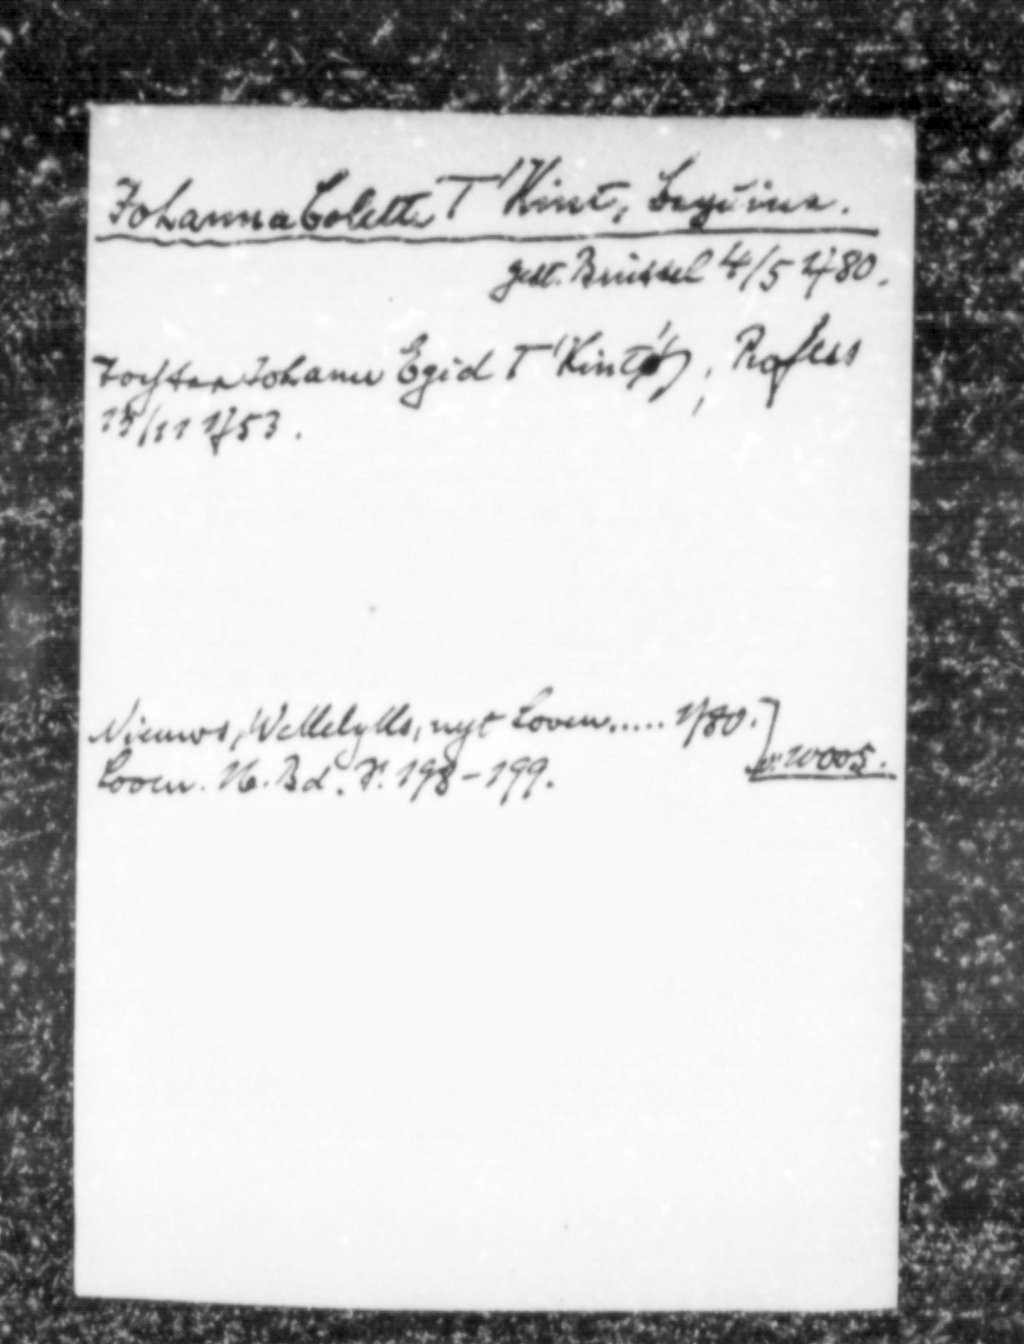 Johanna Colette T'Kint, Beguine.
gest. Brüssel 4/5 1780.
Tochter Johann Egid T'Kint, Profess
13/11 1753.
Nieuws, Wekkelyks, uyt Loven..... 1780.
Loven. 16. Bd. S. 198-199.
10005.